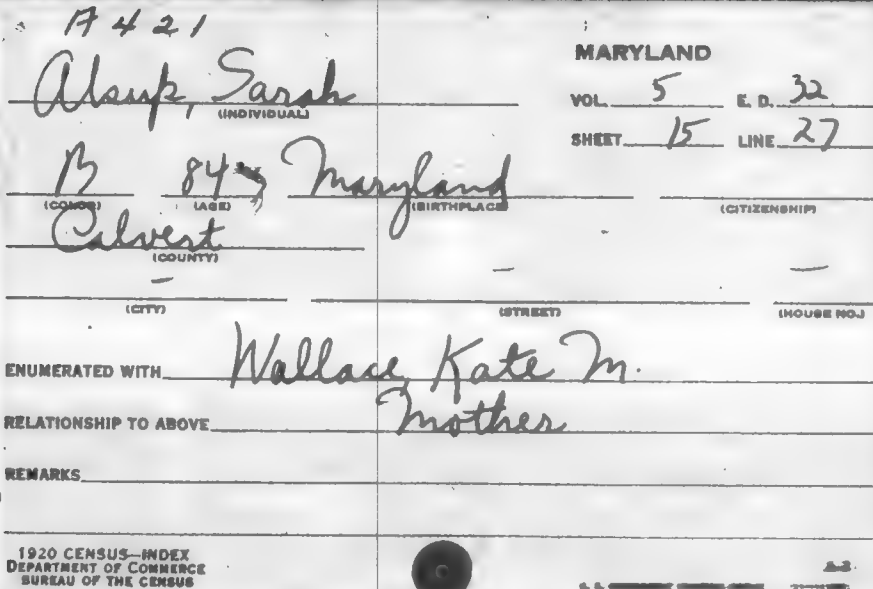 A 421
MARYLAND
Alsup, Sarah
(INDIVIDUAL)
VOL. 5 E. D. 32
SHEET 15 LINE 27
B 84 Maryland
(COLOR) (AGE) (BIRTHPLACE) (CITIZENSHIP)
Calvert
(COUNTY)
- - -
(CITY) (STREET) (HOUSE NO.)
ENUMERATED WITH Wallace, Kate M.
RELATIONSHIP TO ABOVE Mother
REMARKS
1920 CENSUS—INDEX
DEPARTMENT OF COMMERCE
BUREAU OF THE CENSUS